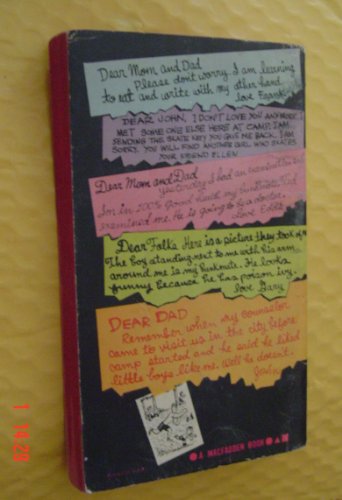 Dear Mom and Dad
Please don't worry. I am learning
to eat and write with my other hand
love Frank
DEAR JOHN, I DON'T LOVE YOU ANYMORE. I
MET SOME ONE ELSE HERE AT CAMP. I AM
SENDING THE SKATE KEY YOU GIVE ME BACK. I AM
SORRY. YOU WILL FIND ANOTHER GIRL WHO SKATES
YOUR FRIEND ELLEN
Dear Mom and Dad
yesterday I had an examination
I'm in 100% Good health my bunkmate
examined me. He is going to be a doctor.
love Eddie
Dear Folks Here is a picture they took of me
The boy standing next to me with his arm
around me is my bunkmate. He looks
funny because he has poison ivy.
love Gary
DEAR DAD
Remember when my counselor
came to visit us in the city before
camp started and he said he liked
little boys like me. Well he doesn't.
John
A MACFADDEN BOOK
1 14:20